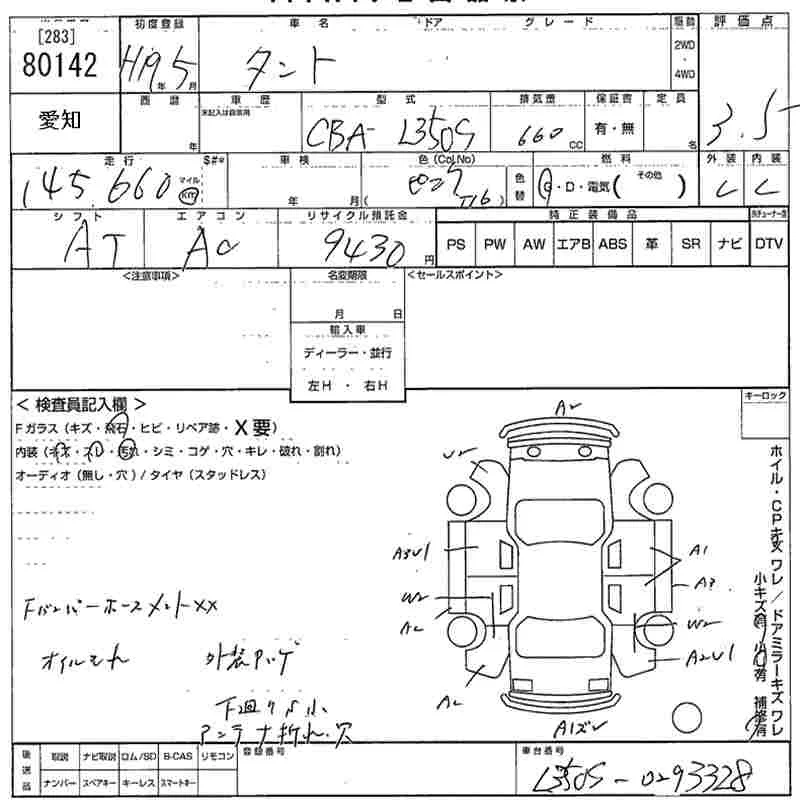 [283]
80142
初度登録
H19年5月
車名
ドア
グレード
タント
駆動
2WD
・
4WD
評価点
3.5
愛知
西暦
年
車歴
未記入は自家用
型式
CBA- L350S
排気量
660 CC
保証書
有・無
定員
名
走行
145,660
マイル
km
S#*
車検
年 月
色(Col.No)
ピンク
( T16 )
色替
燃料
G・D・電気( その他 )
外装
C
内装
C
シフト
AT
エアコン
AC
リサイクル預託金
9430円
純正装備品
PS PW AW エアB ABS 革 SR ナビ
DTV
<注意事項>
名変期限
月 日
輸入車
ディーラー・並行
左H ・ 右H
<セールスポイント>
<検査員記入欄>
Fガラス(キズ・飛石・ヒビ・リペア跡・X要)
内装(キズ・スレ・汚れ・シミ・コゲ・穴・キレ・破れ・割れ)
オーディオ(無し・穴)/タイヤ(スタッドレス)
FバンパーホースメントXX
オイルモレ
下廻りサビ小
アンテナ折れ・穴
キーロック
ホイル・CPキズ ワレ/ドアミラーキズ ワレ
補修有
A2
U2
A3U1
W2
A2
A2
A1
A3
W2
A2U1
後送品
取説 ナビ取説 ロム/SD B-CAS リモコン
ナンバー スペアキー キーレス スマートキー
登録番号
車台番号
L350S-0293328